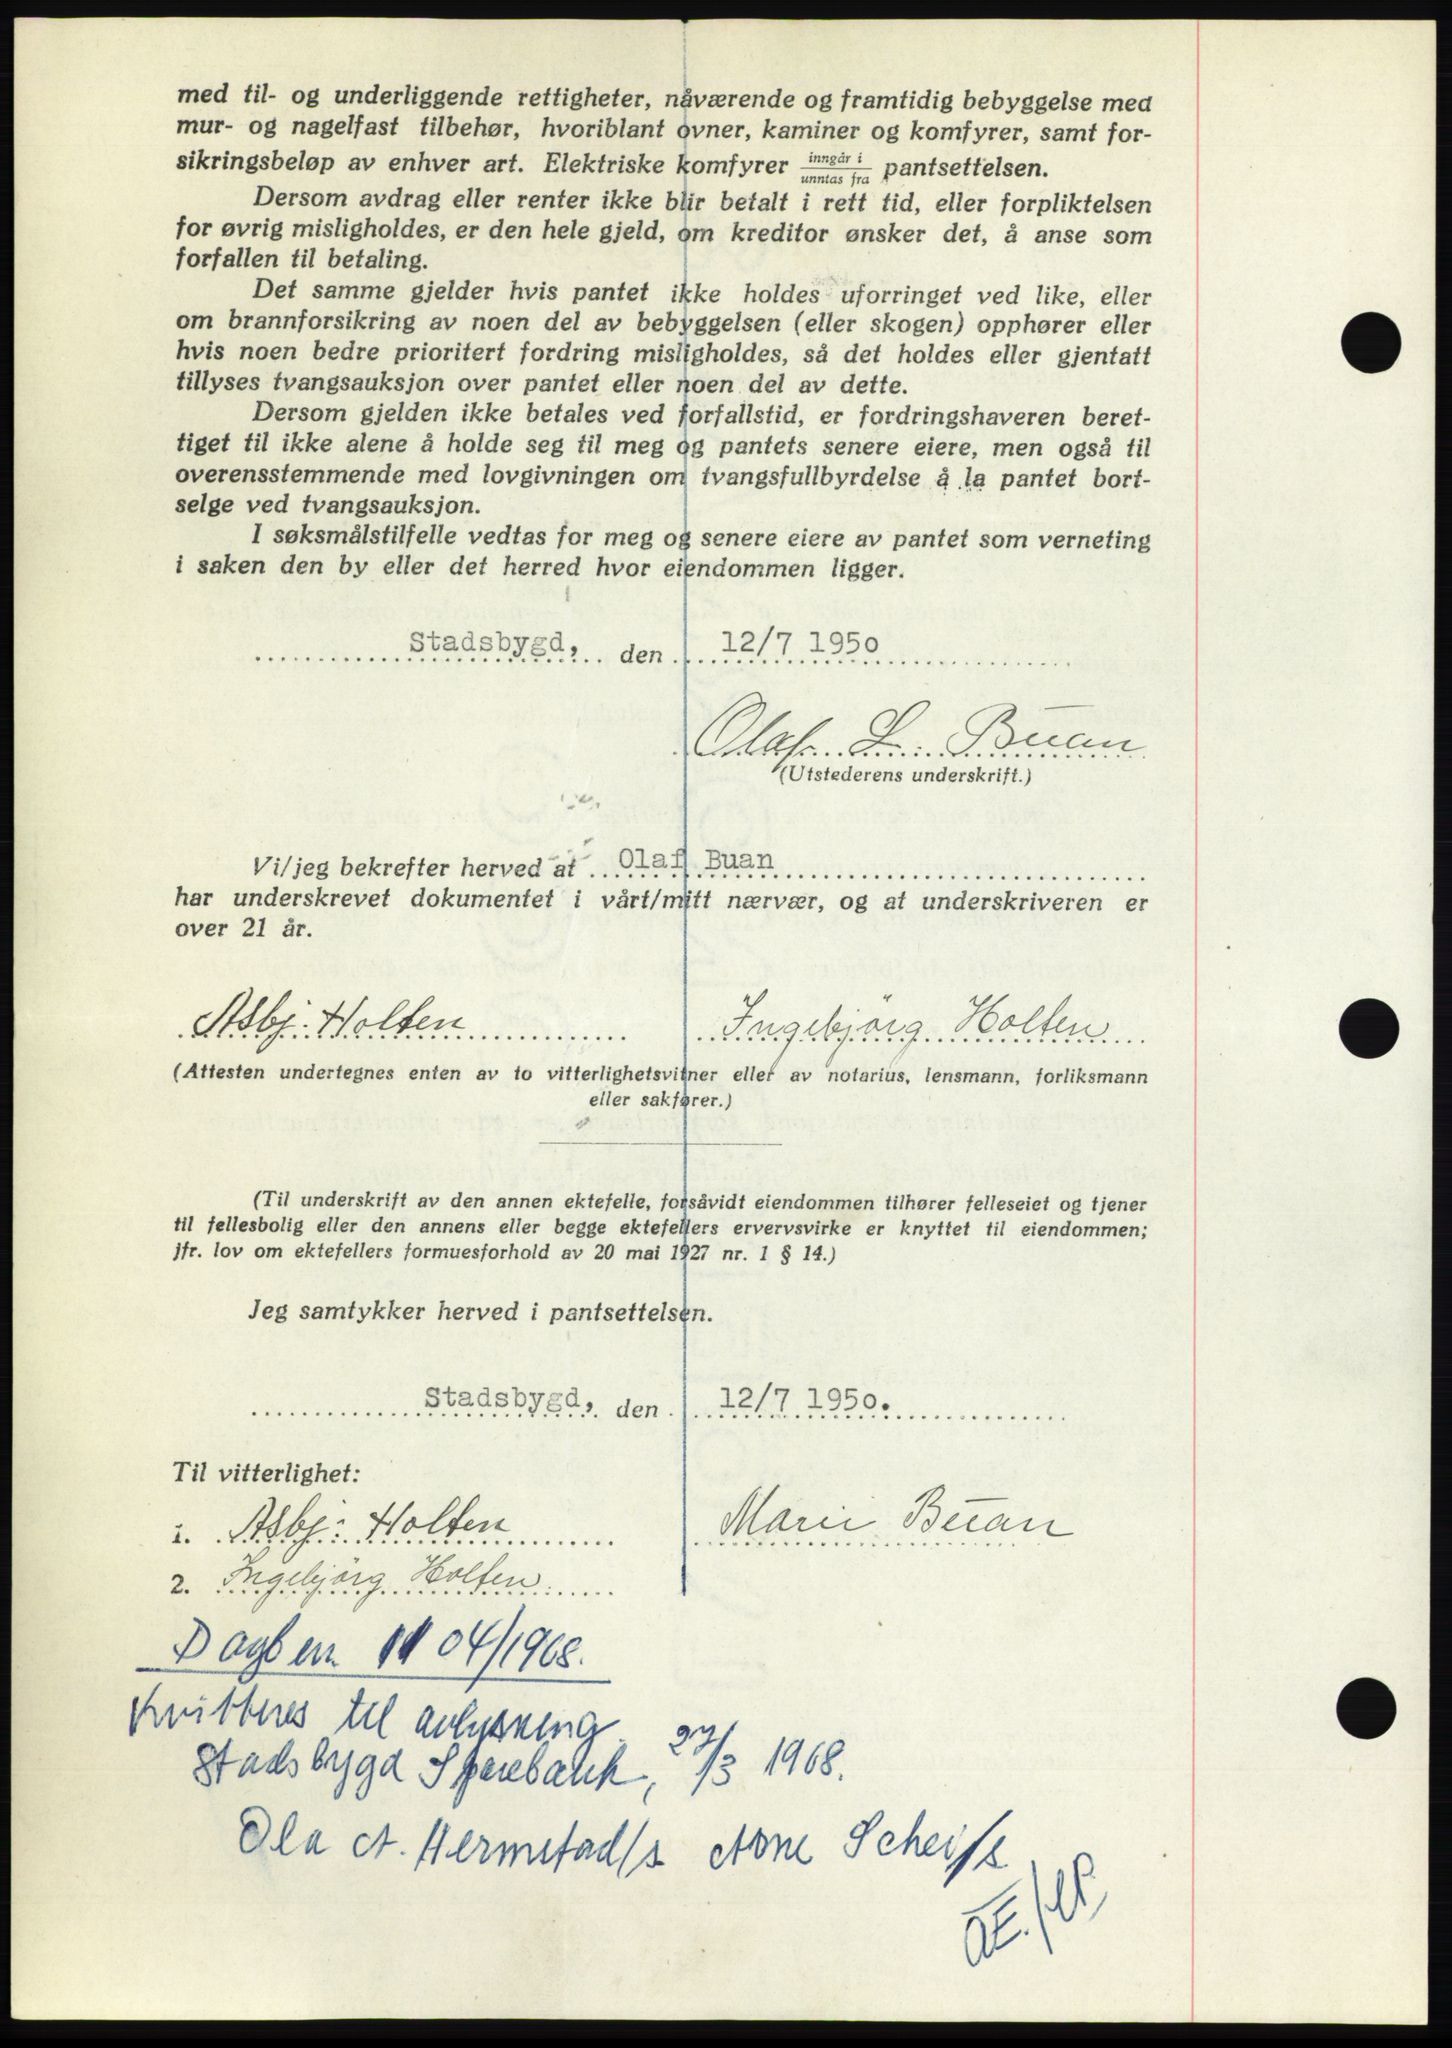 med til- og underliggende rettigheter, nåværende og framtidig bebyggelse med
mur- og nagelfast tilbehør, hvoriblant ovner, kaminer og komfyrer, samt for-
sikringsbeløp av enhver art. Elektriske komfyrer inngår i / unntas fra pantsettelsen.
Dersom avdrag eller renter ikke blir betalt i rett tid, eller forpliktelsen
for øvrig misligholdes, er den hele gjeld, om kreditor ønsker det, å anse som
forfallen til betaling.
Det samme gjelder hvis pantet ikke holdes uforringet ved like, eller
om brannforsikring av noen del av bebyggelsen (eller skogen) opphører eller
hvis noen bedre prioritert fordring misligholdes, så det holdes eller gjentatt
tillyses tvangsauksjon over pantet eller noen del av dette.
Dersom gjelden ikke betales ved forfallstid, er fordringshaveren beret-
tiget til ikke alene å holde seg til meg og pantets senere eiere, men også til
overensstemmende med lovgivningen om tvangsfullbyrdelse å la pantet bort-
selge ved tvangsauksjon.
I søksmålstilfelle vedtas for meg og senere eiere av pantet som verneting
i saken den by eller det herred hvor eiendommen ligger.
Stadsbygd, den 12/7 1950
Olaf L. Buan
(Utstederens underskrift.)
Vi/jeg bekrefter herved at Olaf Buan
har underskrevet dokumentet i vårt/mitt nærvær, og at underskriveren er
over 21 år.
Asbj: Holten Ingebjörg Holten
(Attesten undertegnes enten av to vitterlighetsvitner eller av notarius, lensmann, forliksmann
eller sakfører.)
(Til underskrift av den annen ektefelle, forsåvidt eiendommen tilhører felleseiet og tjener
til fellesbolig eller den annens eller begge ektefellers ervervsvirke er knyttet til eiendommen;
jfr. lov om ektefellers formuesforhold av 20 mai 1927 nr. 1 § 14.)
Jeg samtykker herved i pantsettelsen.
Stadsbygd, den 12/7 1950.
Til vitterlighet:
1. Asbj: Holten Marie Buan
2. Ingebjörg Holten
Dagb nr. 1104/1968.
Kvitteres til avlysning
Stadsbygd Sparebank, 27/3 1968.
Ola A. Hermstad/s Arne Schei/s